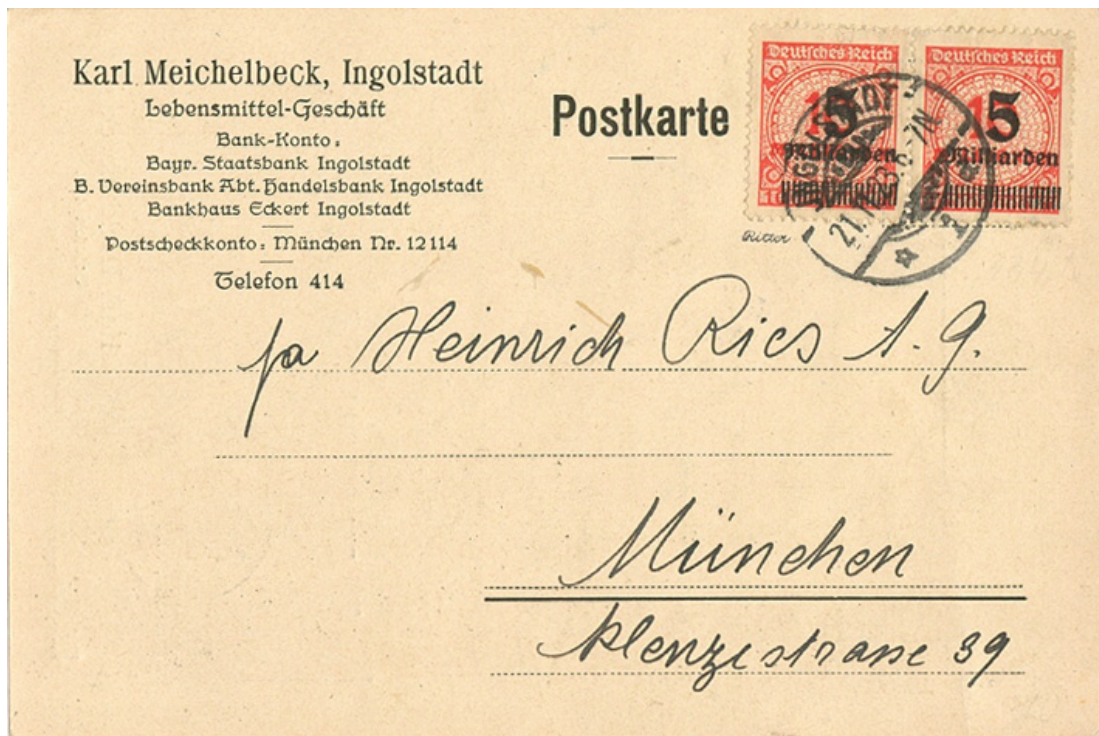 Karl Meichelbeck, Ingolstadt
Lebensmittel-Geschäft
Bank-Konto:
Bayr. Staatsbank Ingolstadt
B. Vereinsbank Abt. Handelsbank Ingolstadt
Bankhaus Eckert Ingolstadt
Postscheckkonto: München Nr. 12114
Telefon 414
Postkarte
Deutsches Reich Deutsches Reich
5 5
Milliarden Milliarden
INGOLSTADT
21.
Ritter
fa Heinrich Ries A. G.
München
Klenzestrasse 39